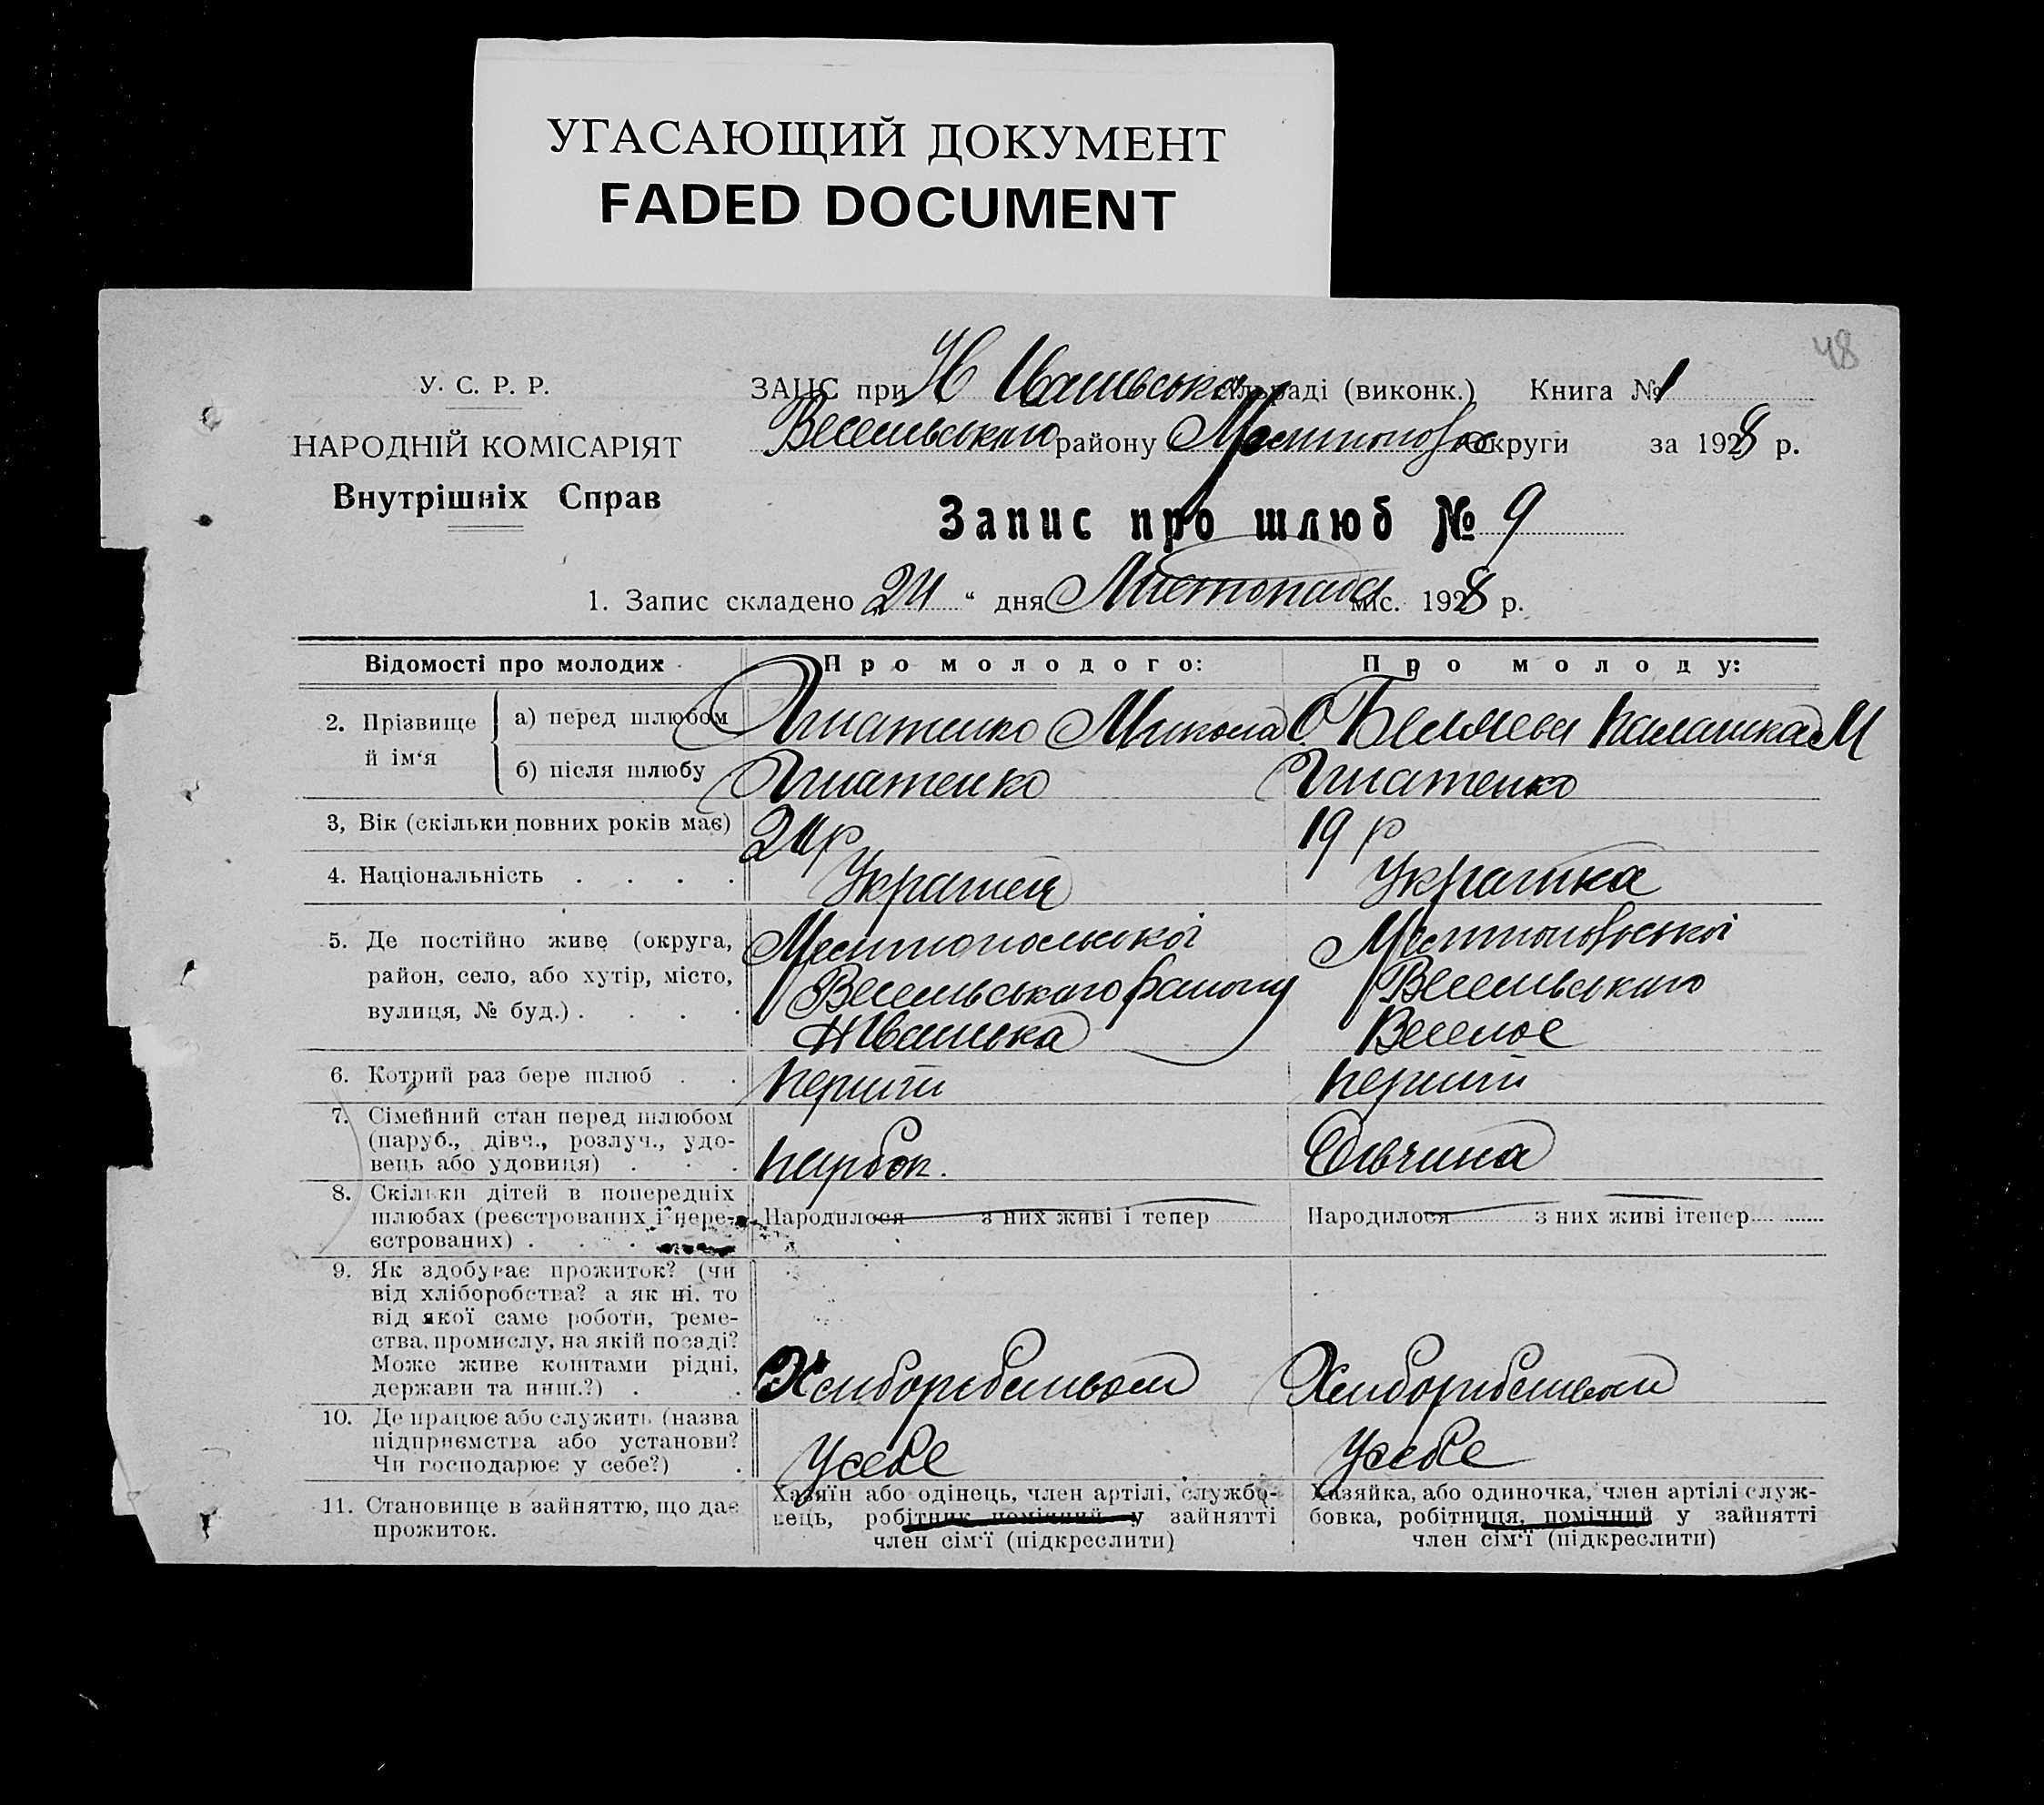 УГАСАЮЩИЙ ДОКУМЕНТ
FADED DOCUMENT
48
У. С. Р. Р.
НАРОДНІЙ КОМІСАРІЯТ
Внутрішніх Справ
ЗАЦС при Н сільраді (виконк.) Книга № 1
Веселівського району округи за 1928 р.
Запис про шлюб № 9
1. Запис складено 24 “ дня Листопада міс. 1928 р.
Відомості про молодих
Про молодого:
Про молоду:
2. Прізвище й ім‘я
а) перед шлюбом
Гнатенко Микола О.
Беляева Палашка М
б) після шлюбу
Гнатенко
Гнатенко
3, Вік (скільки повних років має)
24р
19 р
4. Національність . . . .
Украінец
Украінка
5. Де постійно живе (округа,
район, село, або хутір, місто,
вулиця, № буд.) . . . .
Мелітопольскоі
Веселівського району
Мелітопольскоі
Веселівського
Веселое
6. Котрий раз бере шлюб . .
перший
перший
7. Сімейний стан перед шлюбом
(паруб., дівч., розлуч., удо-
вець або удовиця) . . .
парбок.
Дівчина
8. Скільки дітей в попередніх
шлюбах (реєстрованих і нере-
єстрованих) . . . .
Народилося з них живі і тепер
Народилося з них живі ітепер
9. Як здобуває прожиток? (чи
від хліборобства? а як ні, то
від якої саме роботи, реме-
ства, промислу, на якій посаді?
Може живе коштами рідні,
держави та инш.?) . .
10. Де працює або служить (назва
підприємства або установи?
Чи господарює у себе?) .
Усебе
Усебе
11. Становище в зайняттю, що дає
прожиток.
Хазяїн або одінець, член артілі, службо-
вець, робітник помічний у зайнятті
член сім‘ї (підкреслити)
Хазяйка, або одиночка, член артілі служ-
бовка, робітниця, помічний у зайнятті
член сім‘ї (підкреслити)